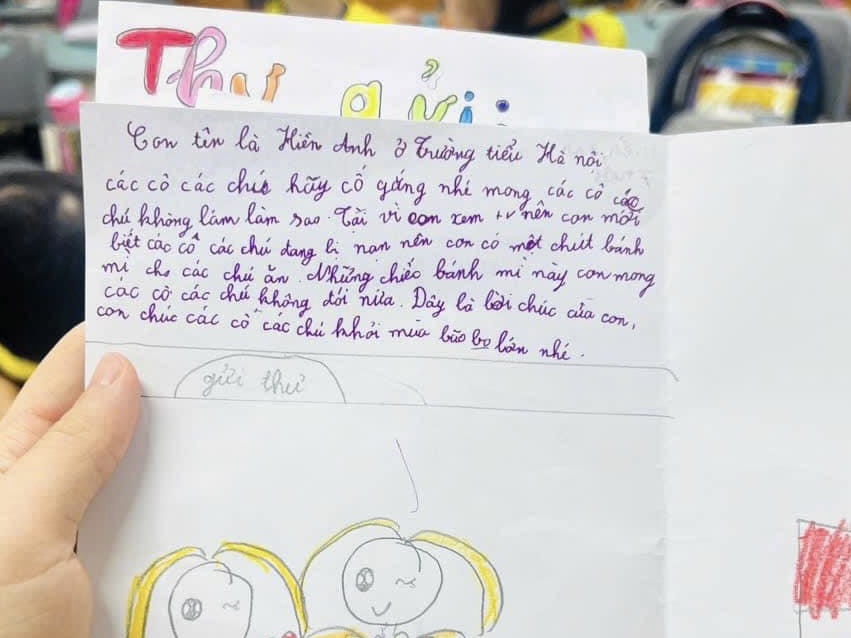 Thư gửi:
Con tên là Hiền Anh ở Trường tiểu Hà nôi
các cô các chú hãy cố gắng nhé mong các cô các
chú không lám làm sao. Tài vì con xem tv nên con mới
biết các cô các chú đang bị nạn nên con có một chút bánh
mì cho các chú ăn. Những chiếc bánh mì này con mong
các cô các chú không đói nữa. Dây là lời chúc của con,
con chúc các cô các chú khỏi mùa bão bo lớn nhé.
gửi thư